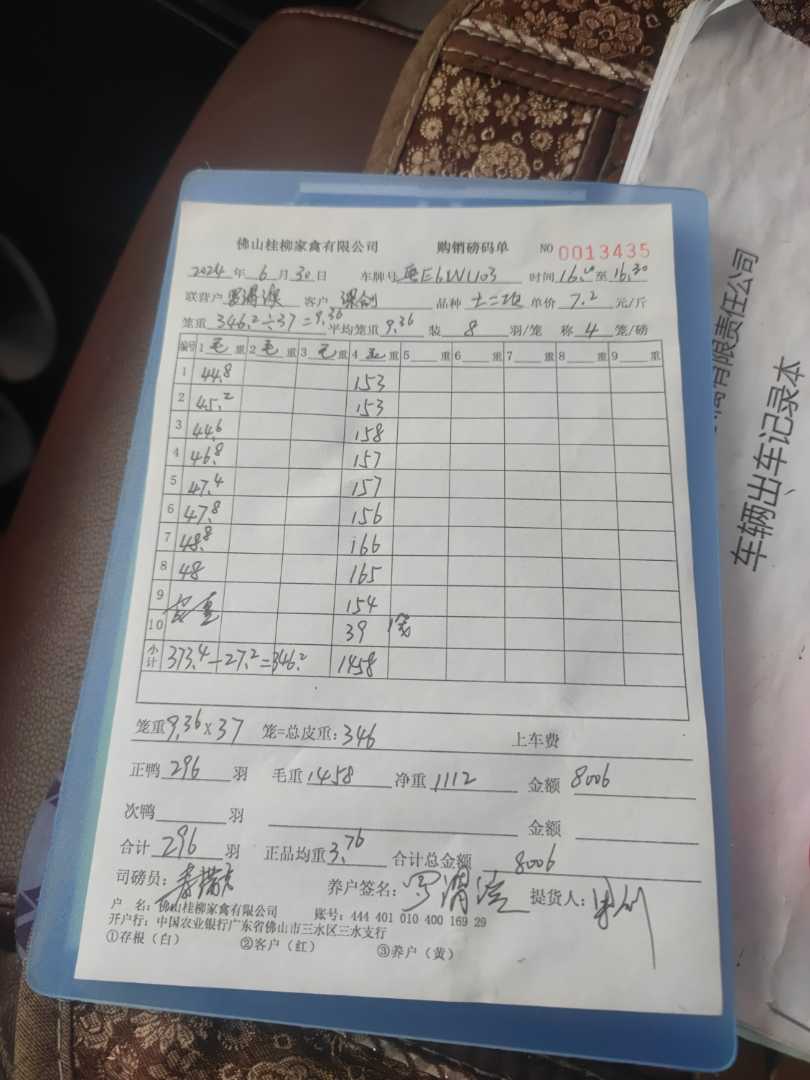 佛山桂柳家禽有限公司 购销磅码单 NO 0013435
2024 年 6 月 30 日 车牌号 粤E6WU03 时间 16. 至 16.30
联营户 客户 品种 土二改 单价 7.2 元/斤
笼重 346.2÷37=9.36 平均笼重 9.36 装 8 羽/笼 称 4 笼/磅
编号 1 毛 重 2 毛 重 3 毛 重 4 毛 重 5 重 6 重 7 重 8 重 9 重
1 44.8 153
2 45.2 153
3 44.6 158
4 46.8 157
5 47.4 157
6 47.8 156
7 48.8 166
8 48 165
9 皮重 154
10 39 1笼
小计 373.4-27.2=346.2 1458
笼重 9.36×37 笼=总皮重: 346 上车费
正鸭 296 羽 毛重 1458 净重 1112 金额 8006
次鸭 羽 金额
合计 296 羽 正品均重 3.76 合计总金额 8006
司磅员: 养户签名: 提货人:
户 名: 佛山桂柳家禽有限公司 账号: 444 401 010 400 169 29
开户行: 中国农业银行广东省佛山市三水区三水支行
①存根（白） ②客户（红） ③养户（黄）
有限责任公司
车辆出车记录本